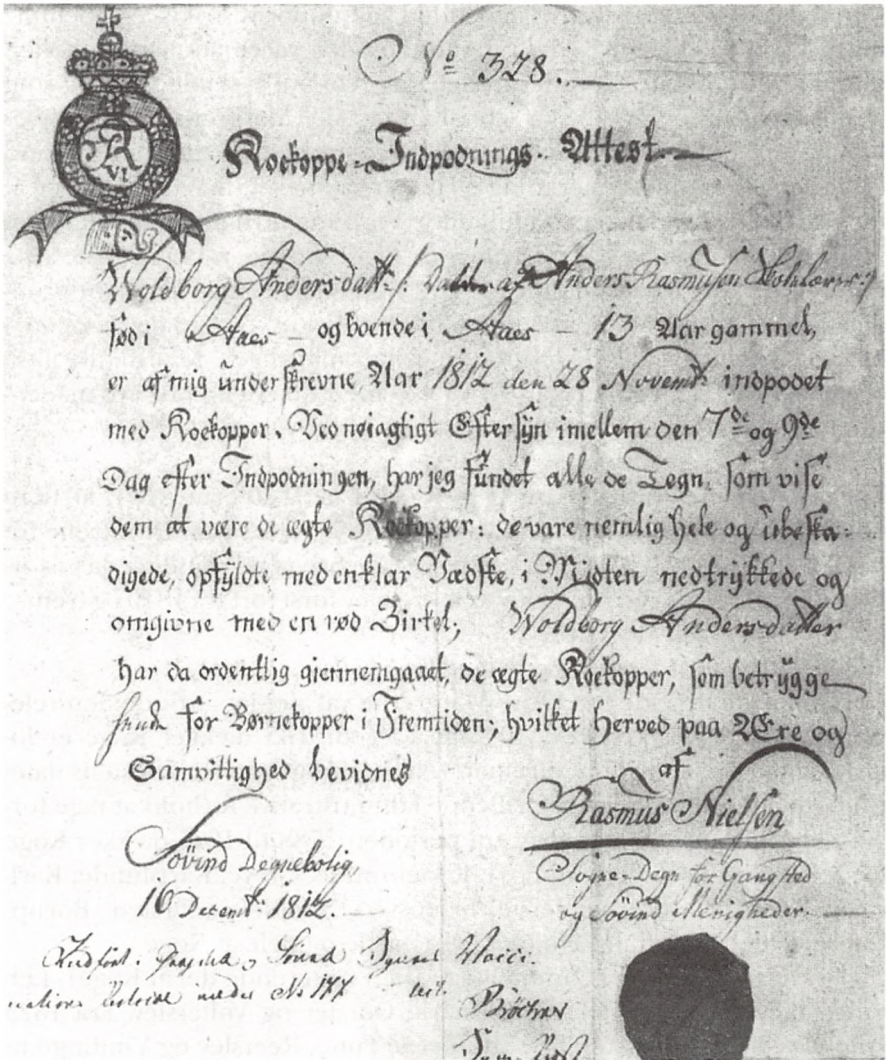 No 328.
FR VI
Kockoppe-Indpodnings-Attest.
Woldborg Andersdatt: /: Datter af Anders Rasmusen
fød i Aaes og boende i Aaes 13 Aar gammel,
er af mig underskrevne Aar 1812 den 28 Novembr indpodet
med Kockopper. Ved nøiagtigt Eftersÿn imellem den 7de og 9de
Dag efter Indpodningen, har jeg fundet alle de Tegn, som vise
dem at være de ægte Kockopper: de vare nemlig hele og ubeska-
digede, opfÿldte med en klar Vædske, i Midten nedtrykkede og
omgivne med en rød Zirkel; Woldborg Andersdatter
har da ordentlig gjennemgaaet, de ægte Kockopper, som betrÿgge
hende for Børnekopper i Fremtiden; hvilket herved paa Ære og
Samvittighed bevidnes
af
Rasmus Nielsen
Søvind Degnebolig,
16 Decembr: 1812.
Sogne-Degn for Gangsted
og Søvind Menigheder.
Indført i Søvind Vacci-
nations under No 177